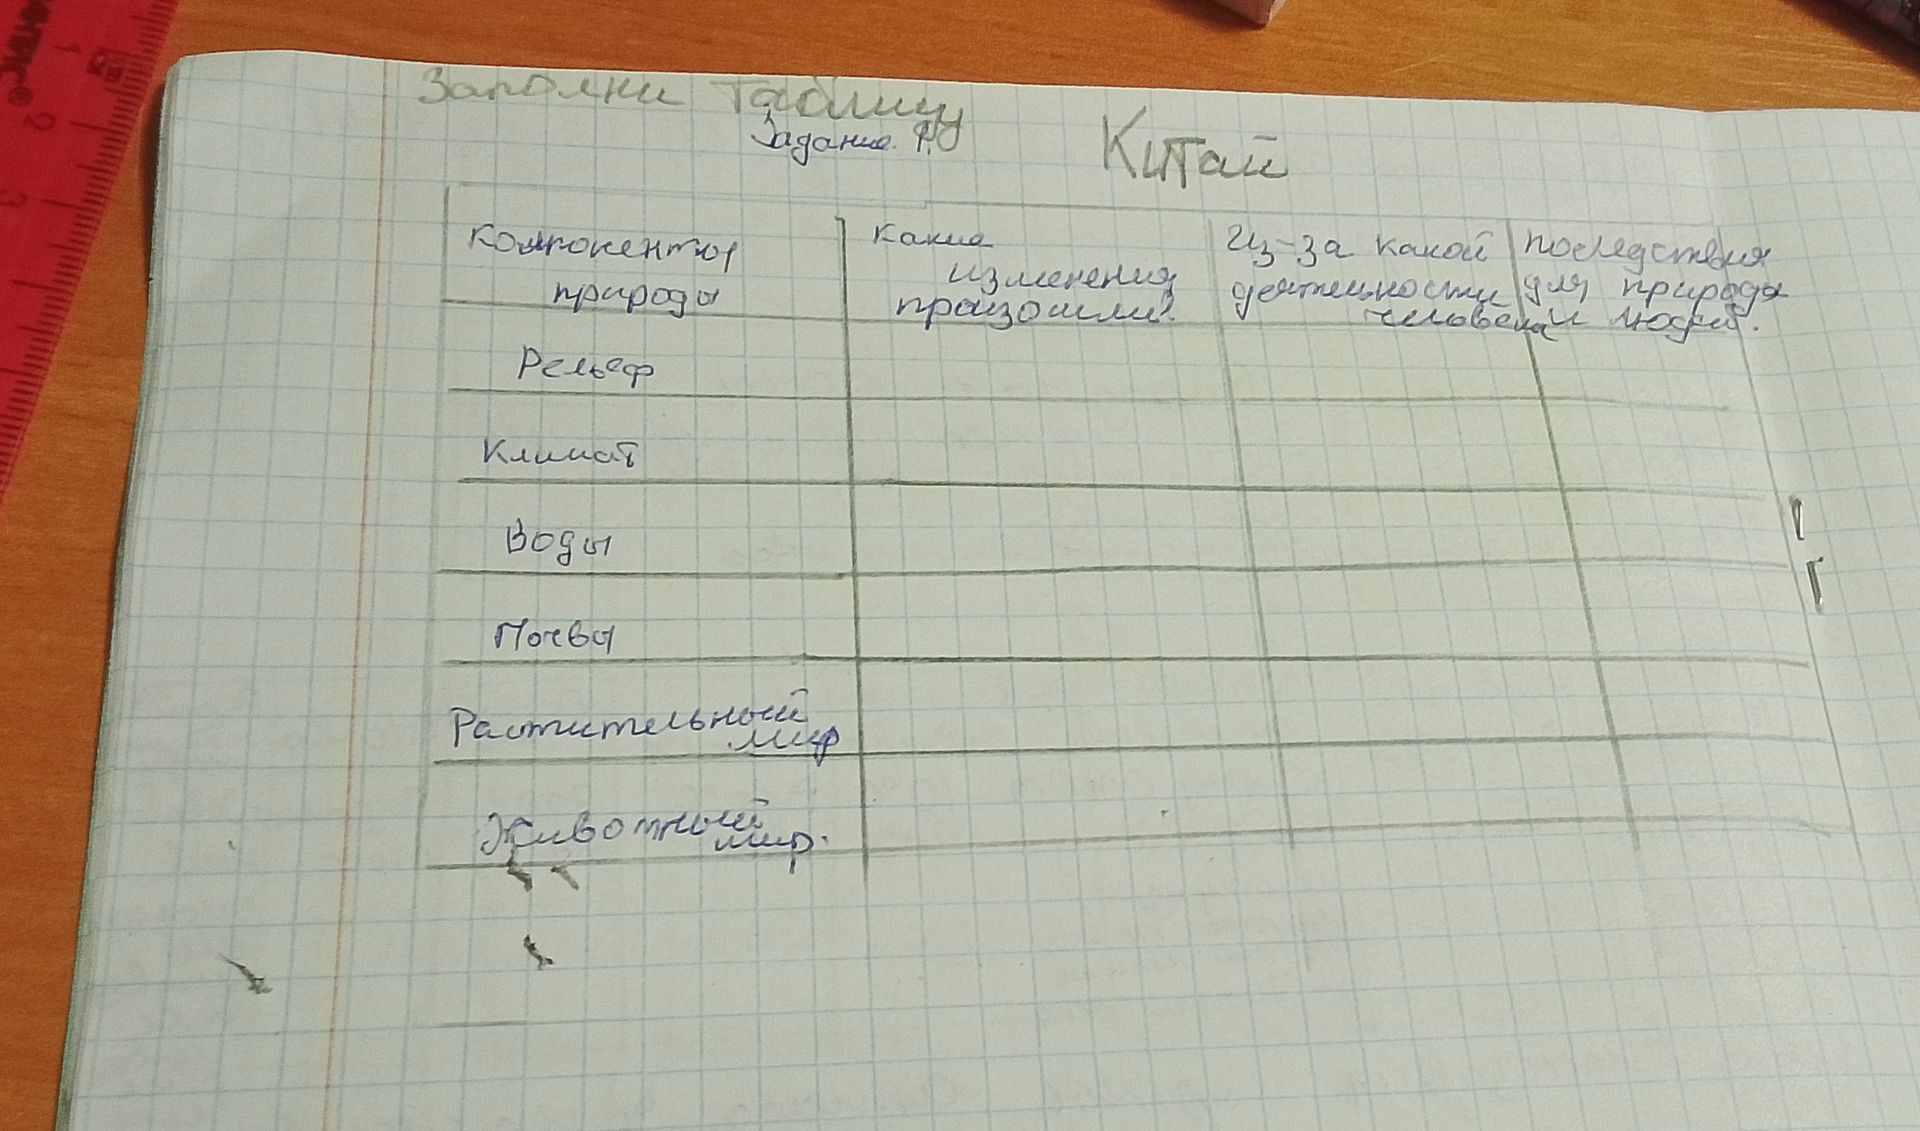 Заполни таблицу
Задание
Китай
Компоненты природы
Какие изменения праизошли?
Из-за какой деятельности человека
последствия для природы и людей.
Рельеф
Климат
Воды
Почвы
Растительный мир
Животный мир.
1
2
3